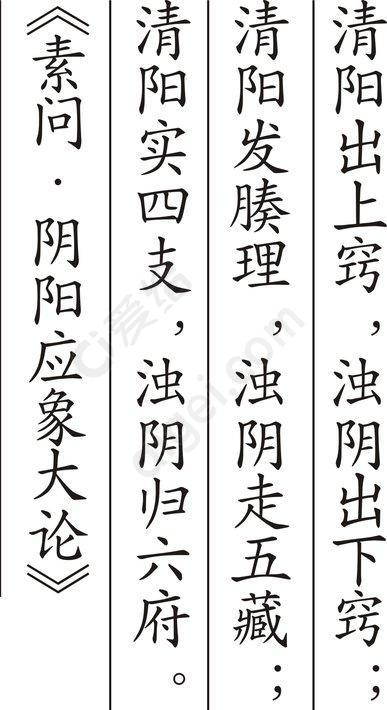 清阳出上窍，浊阴出下窍；
清阳发腠理，浊阴走五藏；
清阳实四支，浊阴归六府。
《素问·阴阳应象大论》